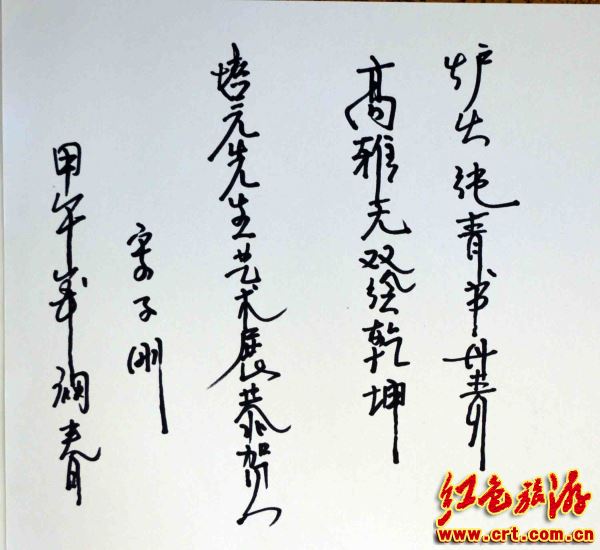 炉火纯青书丹青
高雅无双绘乾坤
培元先生艺术展恭贺
子刚
甲午春
红色旅游
www.crt.com.cn